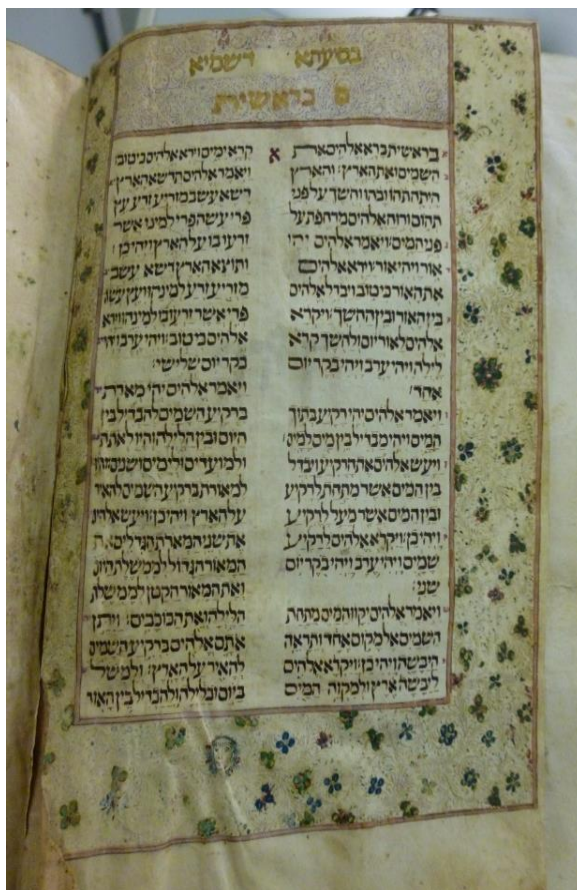 בסעתא דשמיא
ס בראשית
בראשית ברא אלהים את
השמים ואת הארץ׃ והארץ
היתה תהו ובהו וחשך על פני
תהום ורוח אלהים מרחפת על
פני המים׃ ויאמר אלהים יהי
אור ויהי אור׃ וירא אלהים
את האור כי טוב ויבדל אלהים
בין האור ובין החשך׃ ויקרא
אלהים לאור יום ולחשך קרא
לילה ויהי ערב ויהי בקר יום
אחד׃
ויאמר אלהים יהי רקיע בתוך
המים ויהי מבדיל בין מים למים׃
ויעש אלהים את הרקיע ויבדל
בין המים אשר מתחת לרקיע
ובין המים אשר מעל לרקיע
ויהי כן׃ ויקרא אלהים לרקיע
שמים ויהי ערב ויהי בקר יום
שני׃
ויאמר אלהים יקוו המים מתחת
השמים אל מקום אחד ותראה
היבשה ויהי כן׃ ויקרא אלהים
ליבשה ארץ ולמקוה המים
א
קרא ימים וירא אלהים כי טוב׃
ויאמר אלהים תדשא הארץ
דשא עשב מזריע זרע עץ
פרי עשה פרי למינו אשר
זרעו בו על הארץ ויהי כן׃
ותוצא הארץ דשא עשב
מזריע זרע למינהו ועץ עשה
פרי אשר זרעו בו למינהו וירא
אלהים כי טוב׃ ויהי ערב ויהי
בקר יום שלישי׃
ויאמר אלהים יהי מארת
ברקיע השמים להבדיל בין
היום ובין הלילה והיו לאתת
ולמועדים ולימים ושנים׃ והיו
למאורת ברקיע השמים להאיר
על הארץ ויהי כן׃ ויעש אלהים
את שני המארת הגדלים את
המאור הגדול לממשלת היום
ואת המאור הקטן לממשלת
הלילה ואת הכוכבים׃ ויתן
אתם אלהים ברקיע השמים
להאיר על הארץ׃ ולמשל
ביום ובלילה ולהבדיל בין האור